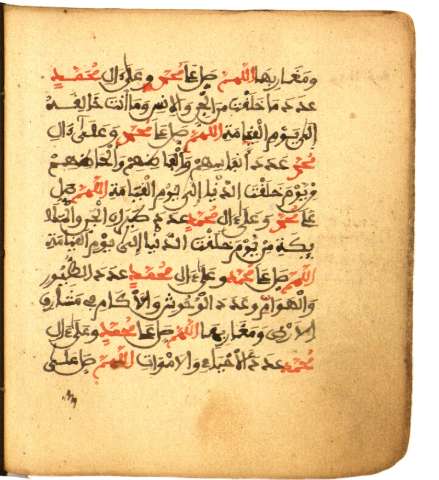 ومغاربها اللهم صل على محمد وعلى ءال محمد
عدد ما خلقت من الجن والانس وما انت خالقه
الى يوم القيامة اللهم صل على محمد وعلى ءال
محمد عدد أنفاسهم وألفاظهم وألحاظهم
من يوم خلقت الدنيا الى يوم القيامة اللهم صل
على محمد وعلى ءال محمد عدد طيران الجن والملا
يكة من يوم خلقت الدنيا الى يوم القيامة
اللهم صل على محمد وعلى ءال محمد عدد الطيور
والهوام وعدد الوحوش والأكام في مشارق
الارض ومغاربها اللهم صل على محمد وعلى ءال
محمد عدد الأحياء والاموات اللهم صل على